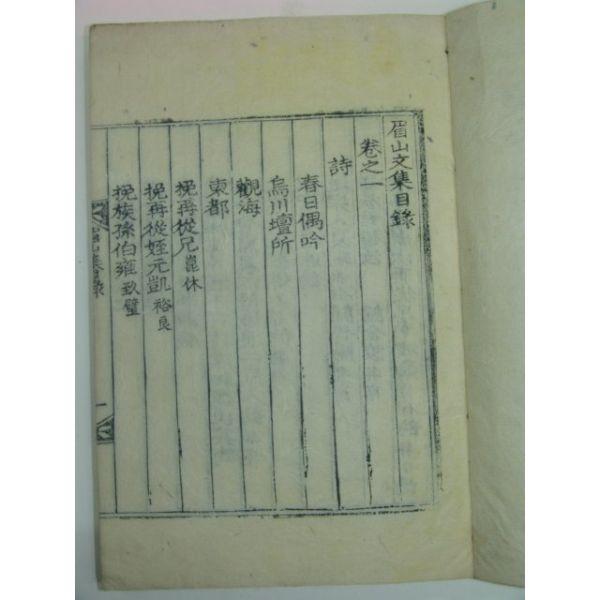 眉山文集目錄
卷之一
詩
春日偶吟
烏川壇所
觀海
東都
挽再從兄 崑休
挽再從姪元凱 裕良
挽族孫伯雍 致璧
眉山集目錄
一